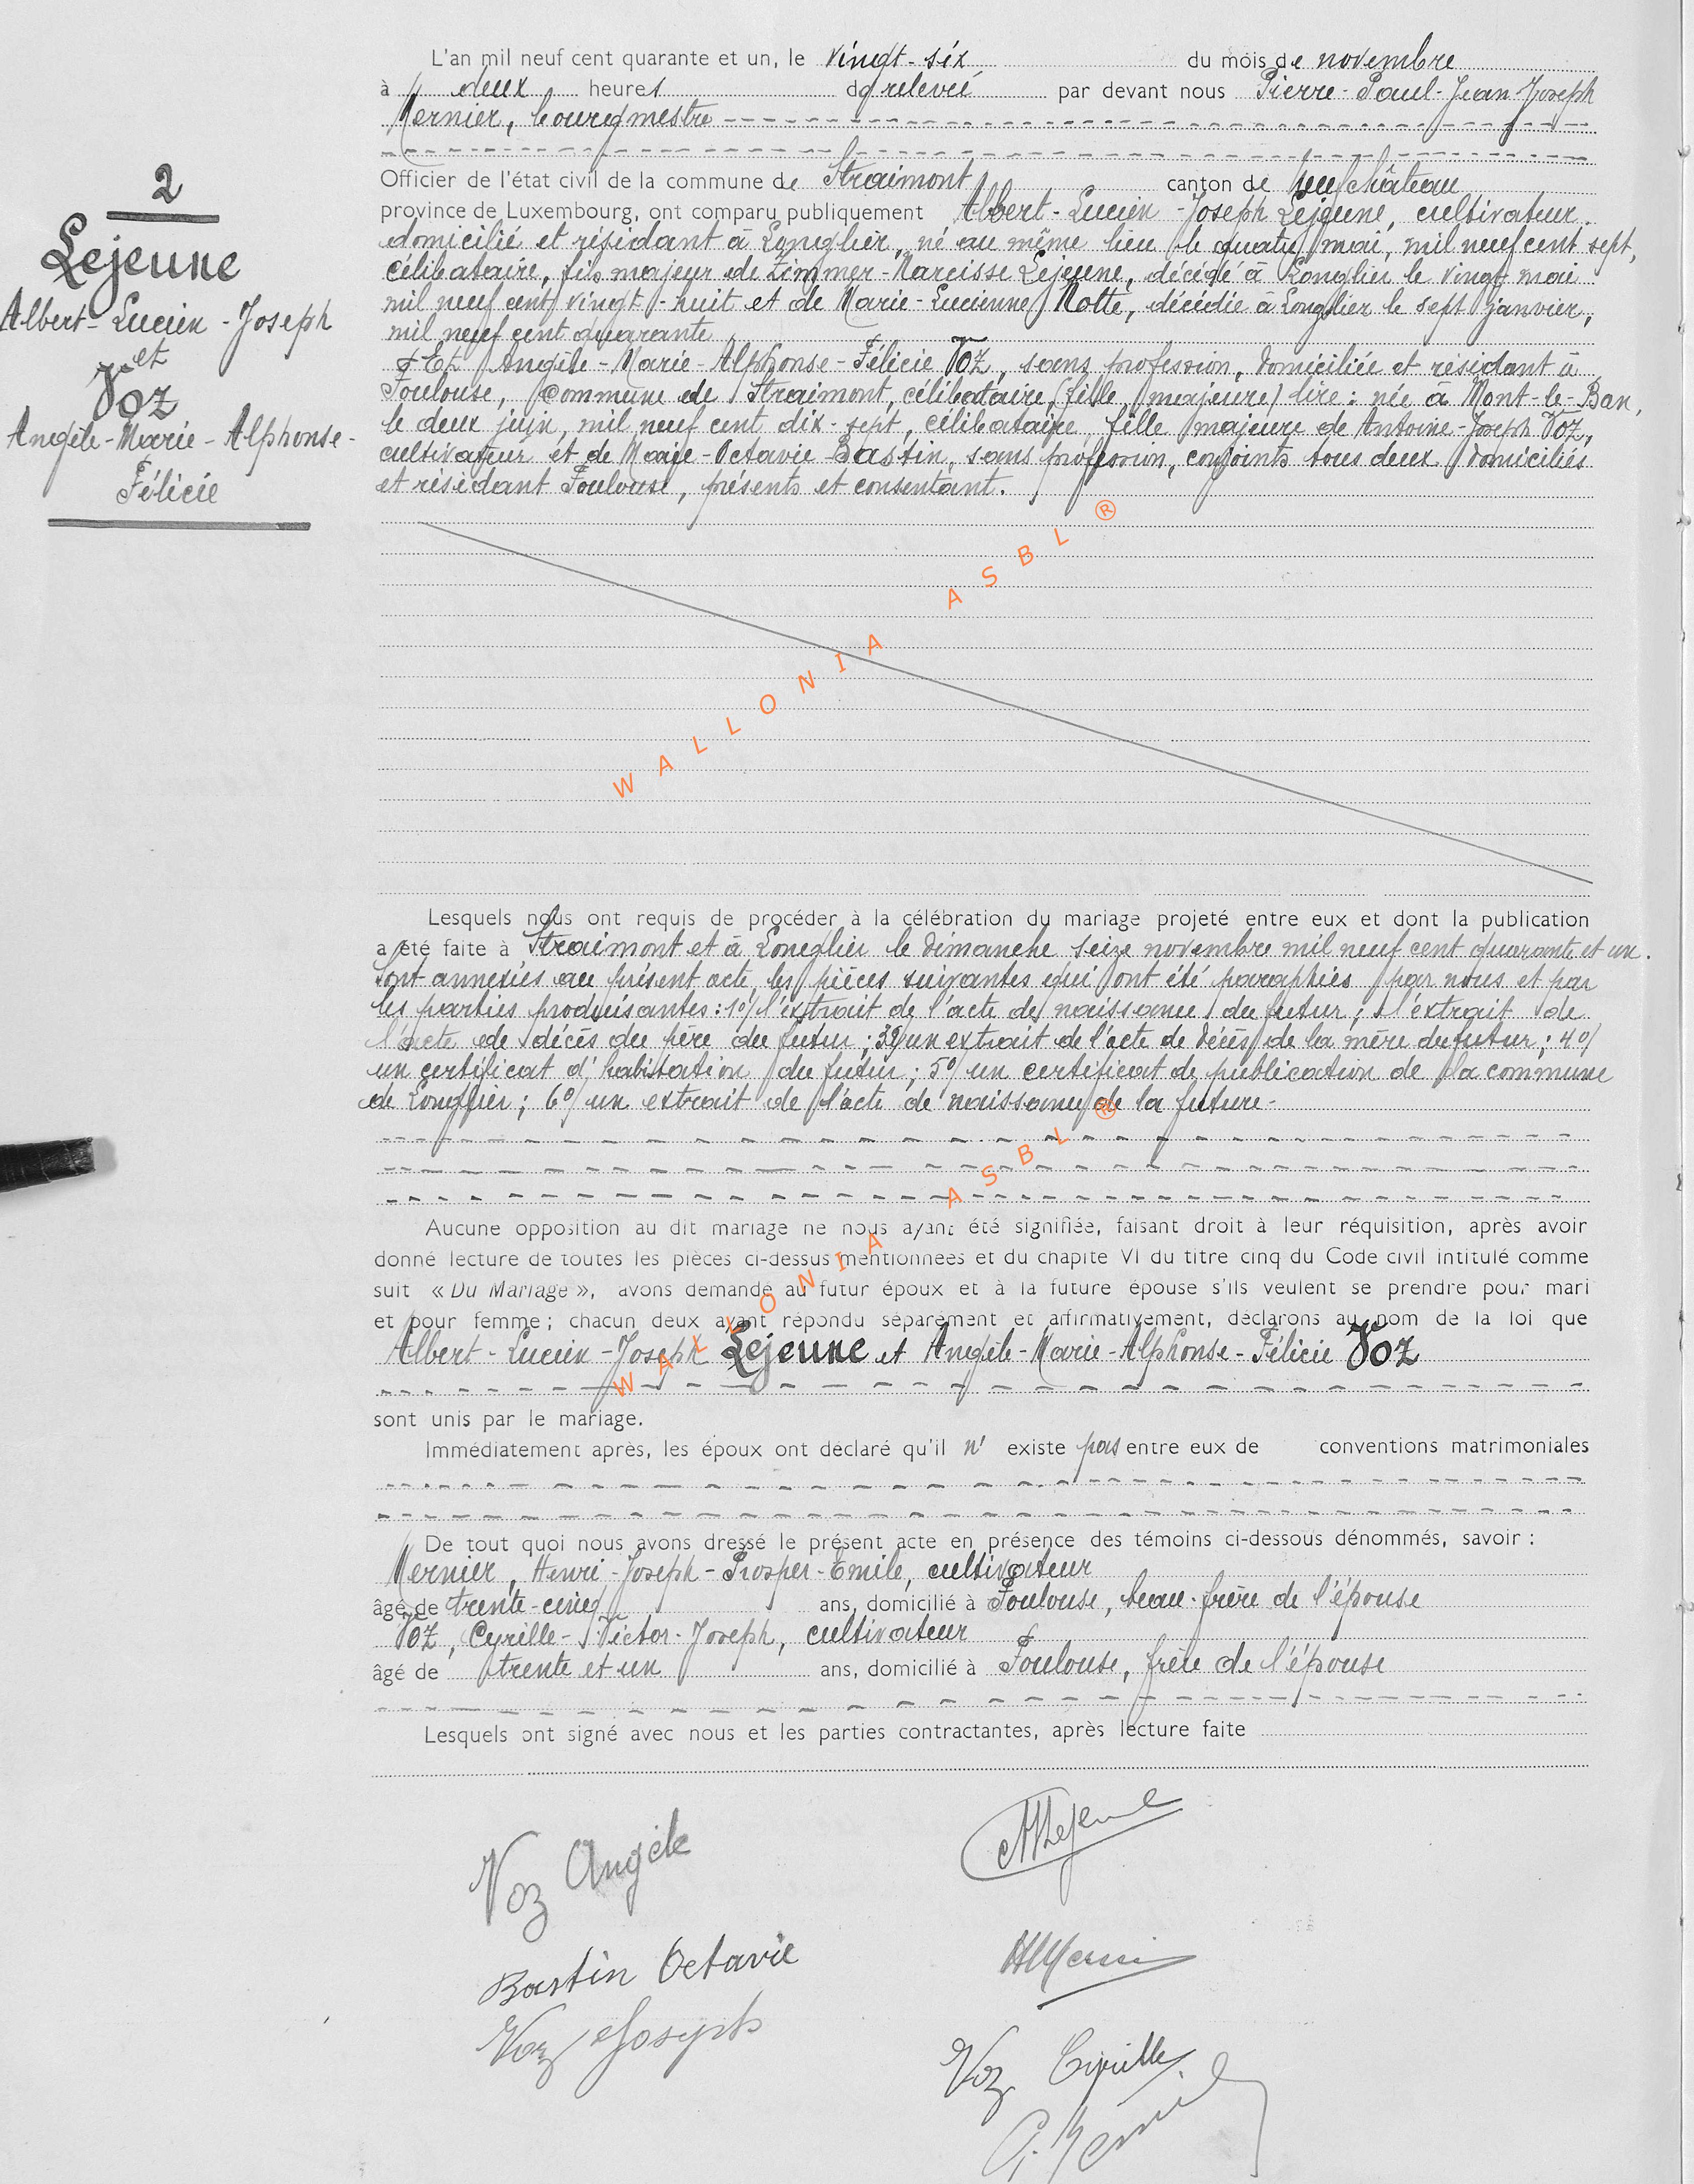 L'an mil neuf cent quarante et un, le vingt-six du mois de novembre
à deux heures de relevée par devant nous Pierre-Paul-Jean-Joseph
Mernier, bourgmestre
Officier de l'état civil de la commune de Straimont canton de Neufchâteau
province de Luxembourg, ont comparu publiquement Albert-Lucien-Joseph Lejeune, cultivateur.
domicilié et résidant à Longlier, né au même lieu le quatre mai, mil neuf cent sept,
célibataire, fils majeur de Zimmer-Narcisse Lejeune, décédé à Longlier le vingt mai
mil neuf cent vingt-huit et de Marie-Lucienne Notte, décédée à Longlier le sept janvier,
mil neuf cent quarante
Et Angèle-Marie-Alphonse-Félicie Voz, sans profession, domiciliée et résidant à
Toulouse, commune de Straimont, célibataire, (fille majeure) lire : née à Mont-le-Ban,
le deux juin, mil neuf cent dix-sept, célibataire, fille majeure de Antoine-Joseph Voz,
cultivateur et de Marie-Octavie Bastin, sans profession, conjoints tous deux domiciliés
et résidant Toulouse, présents et consentant.
2
Lejeune
Albert-Lucien-Joseph
et
Voz
Angèle-Marie-Alphonse-
Félicie
WALLONIA ASBL ®
Lesquels nous ont requis de procéder à la célébration du mariage projeté entre eux et dont la publication
a été faite à Straimont et à Longlier le dimanche seize novembre mil neuf cent quarante et un.
Sont annexées au présent acte, les pièces suivantes qui ont été paraphées par nous et par
les parties produisantes : 1°/ l'extrait de l'acte de naissance du futur ; l'extrait de
l'acte de décès du père du futur ; 3°/ un extrait de l'acte de décès de la mère du futur ; 4°/
un certificat d'habitation du futur ; 5°/ un certificat de publication de la commune
de Longlier ; 6°/ un extrait de l'acte de naissance de la future-
Aucune opposition au dit mariage ne nous ayant été signifiée, faisant droit à leur réquisition, après avoir
donné lecture de toutes les pièces ci-dessus mentionnées et du chapite VI du titre cinq du Code civil intitulé comme
suit « Du Mariage », avons demandé au futur époux et à la future épouse s'ils veulent se prendre pour mari
et pour femme ; chacun deux ayant répondu séparément et affirmativement, déclarons au nom de la loi que
Albert-Lucien-Joseph Lejeune et Angèle-Marie-Alphonse-Félicie Voz
WALLONIA ASBL ®
sont unis par le mariage.
Immédiatement après, les époux ont déclaré qu'il n' existe pas entre eux de conventions matrimoniales
De tout quoi nous avons dressé le présent acte en présence des témoins ci-dessous dénommés, savoir :
Mernier, Henri-Joseph-Prosper-Emile, cultivateur
âgé de trente-cinq ans, domicilié à Toulouse, beau-frère de l'épouse
Voz, Cyrille-Victor-Joseph, cultivateur
âgé de trente et un ans, domicilié à Toulouse, frère de l'épouse
Lesquels ont signé avec nous et les parties contractantes, après lecture faite
Voz Angèle
Lejeune
Bastin Octavie
Voz Joseph
Voz Cyrille